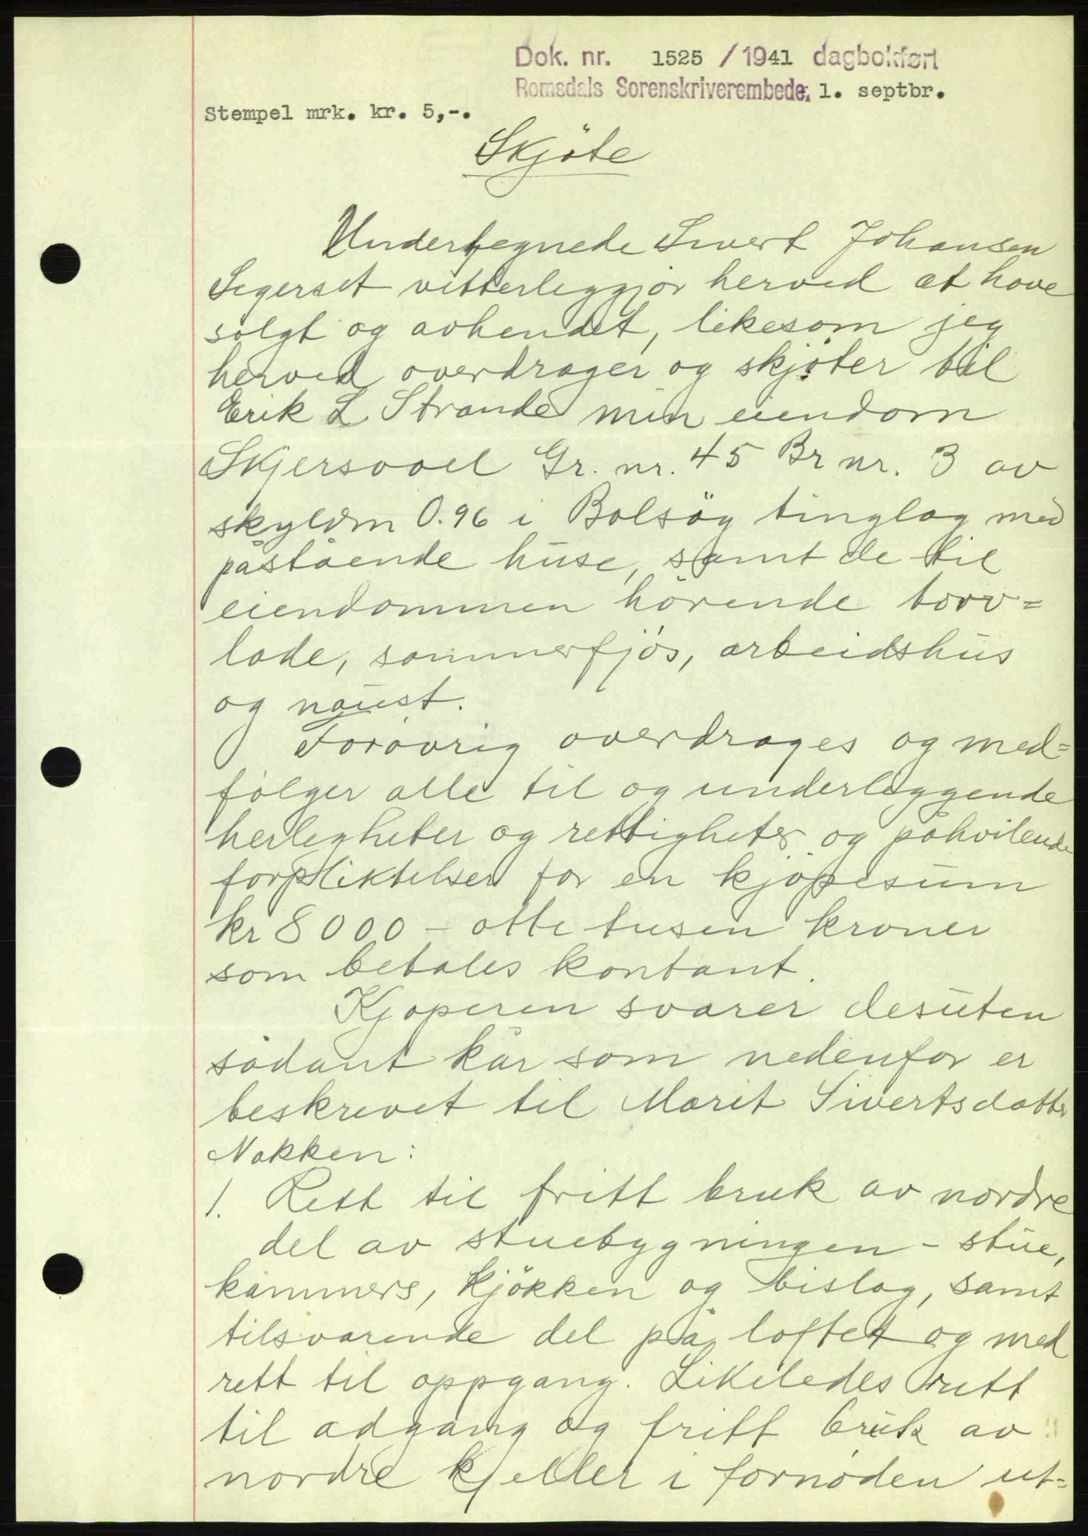 Dok. nr. 1525 / 1941 dagbokført
Romsdals Sorenskriverembede, 1. septbr.
Stempel mrk. kr. 5,-.
Skjöte
Undertegnede Sivert Johansen
Segerset vitterleggjör herved at have
solgt og avhendet, likesom jeg
herved overdrager og skjöter til
Erik L Strande min eiendom
Skjersaael Gr. nr. 45 Br nr. 3 av
skyldm 0.96 i Bolsöy tinglag med
påstående huse, samt de til
eiendommen hörende torv=
lade, sommerfjös, arbeidshus
og naust.
Forövrig overdrages og med=
fölger alle til og underleggende
herlegheter og rettigheter og påhvilende
forpliktelser for en kjöpesum
kr 8000 - otte tusen kroner
som betales kontant.
Kjöperen svarer desuten
sådant kår som nedenfor er
beskrevet til Marit Sivertsdatter
Nakken:
1. Rett til fritt bruk av nordre
del av stuebygningen - stue,
kammers, kjökken og bislag, samt
tilsvarende del på loftet og med
rett til oppgang. Likeledes rett
til adgang og fritt bruk av
nordre kjeller i fornöden ut=